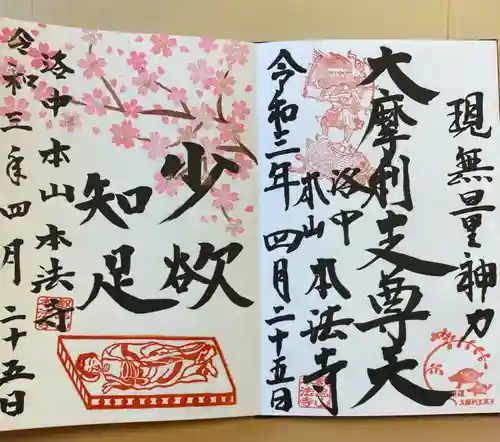 現無量神力
大摩利支尊天
洛中
本山 本法寺
令和三年 四月二十五日
少欲
知足
洛中 本山 本法寺
令和三年四月 二十五日